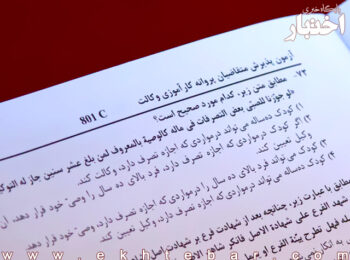 پایگاه خبری
اختبار
آزمون پذیرش متقاضیان پروانه کارآموزی وکالت
801 C
۷۳- مطابق متن زیر، کدام مورد صحیح است؟
«لو جوّزنا للصبّی بعض التصرفات فی ماله کالوصیة بالمعروف لمن بلغ عشر سنین جاز له التوکیل
۱) کودک ده‌ساله می‌تواند درمواردی که اجازه تصرف دارد، وکالت کند.
۲) اگر کودک درمواردی که اجازه تصرف دارد، فرد بالای ده سال را وصیّ خود قرار دهد، آن
وکیل تعیین کند.
۳) کودک می‌تواند فرد بالای ده سال را درمواردی که اجازه تصرف دارد، وصیّ خود قرار دهد
۴) کودک ده‌ساله می‌تواند درمواردی که اجازه تصرف دارد، وکیل تعیین کند
مطابق با عبارت زیر، چنانچه بعد از شهادت فرع بر شهادت اصل
شهد الفرع علی شهادة الاصل فانکر شاهد
www.ekhtebar.com